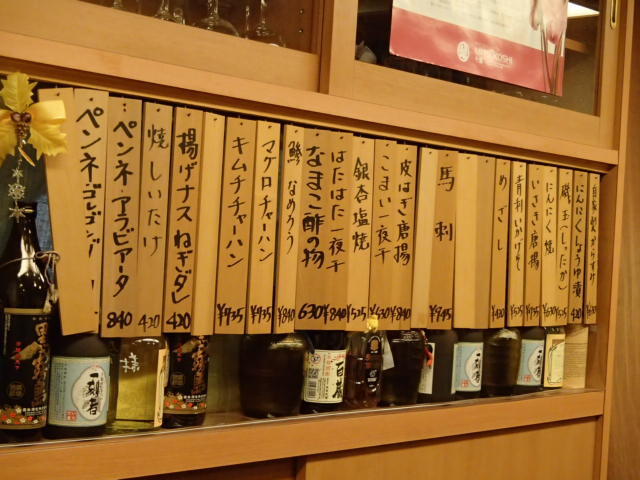 ペンネゴルゴンゾ
ペンネアラビアータ
840
焼しいたけ
420
揚げナスねぎダレ
420
キムチチャーハン
¥735
マグロチャーハン
¥735
鯵なめろう
¥840
なまこ酢の物
630
はたはた一夜干
¥840
銀杏塩焼
¥525
こまい一夜干
¥630
皮はぎ唐揚
¥840
馬刺
¥945
めざし
¥420
青刺いかげそ
¥525
いさき唐揚
にんにく焼
磯玉(しったか)
にんにくしょうゆ漬
420
自家製からすみ
一刻者
百薬
一刻者
一刻者